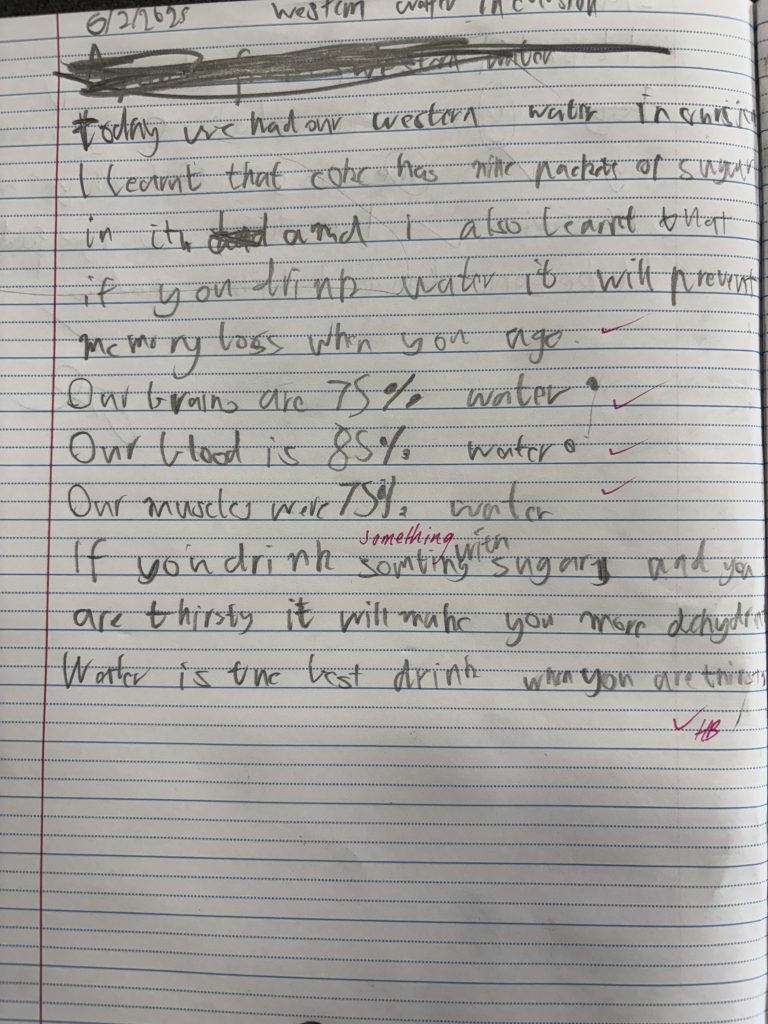 6/2/2025 western water incursion
western water
today we had our western water incursi
I learnt that coke has nine packets of sugar
in it, and I also learnt that
if you drink water it will prevent
memory loss when you age.
Our brains are 75% water.
Our blood is 85% water.
Our muscles were 75% water
something
If you drink somting with sugary and you
are thirsty it will make you more dehydra
Water is the best drink when you are thirsty
HB